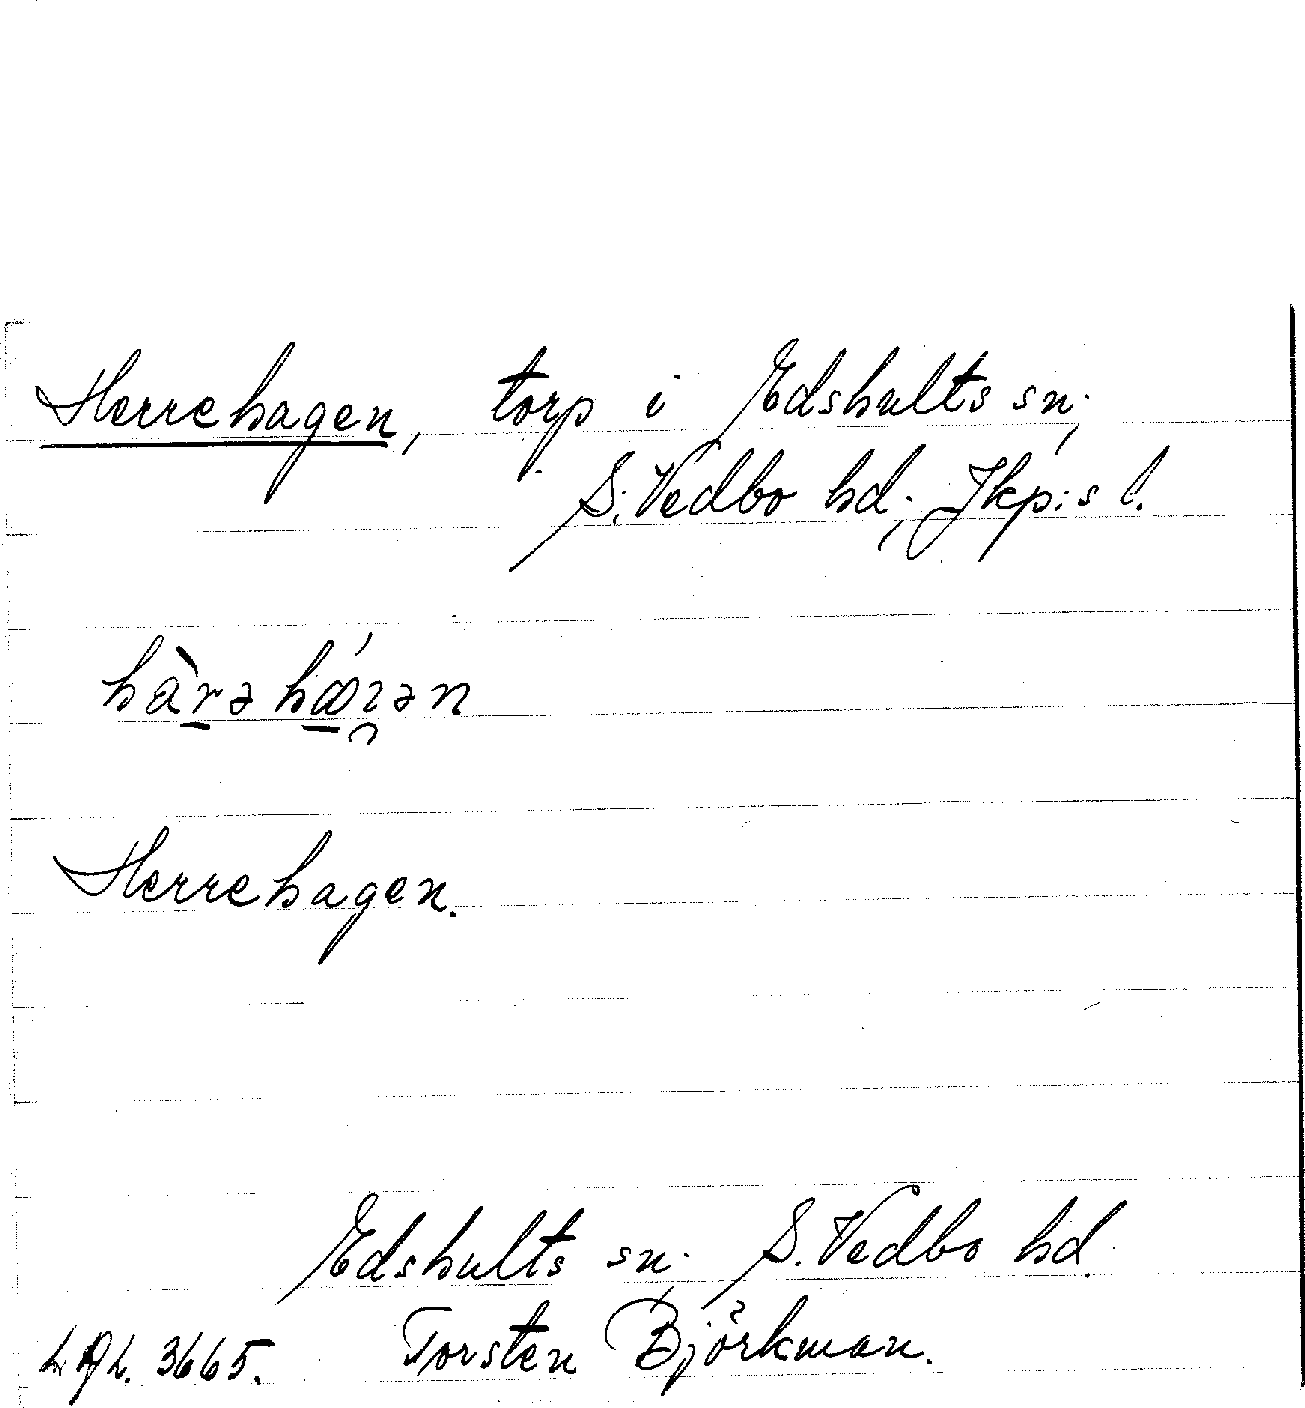 Herrehagen, torp i Edshults sn.,
S. Vedbo hd., Jkp:s l.
Herrehagen.
Edshults sn. S. Vedbo hd.
Torsten Björkman.